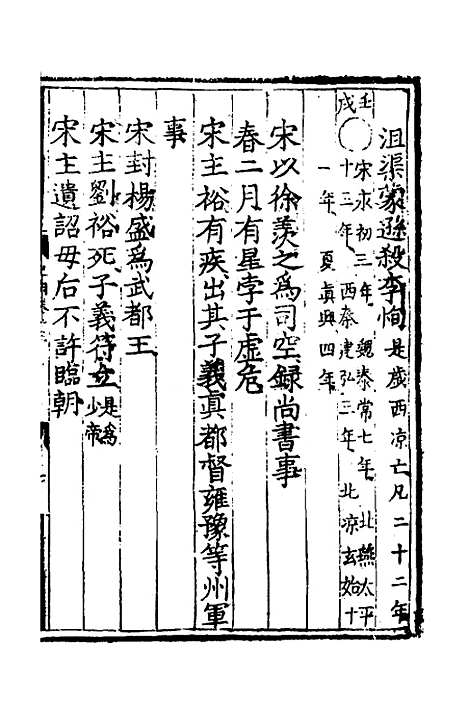 沮渠蒙遜殺李恂是歲西凉亡凡二十二年
壬戌○宋永初三年魏泰常七年北燕太平
十三年西秦建弘三年北凉玄始十
一年夏真興四年
宋以徐羨之爲司空録尚書事
春二月有星孛于虛危
宋主裕有疾出其子義真都督雍豫等州軍
事
宋封楊盛爲武都王
宋主劉裕死子義符立是爲少帝
宋主遺詔毋后不許臨朝